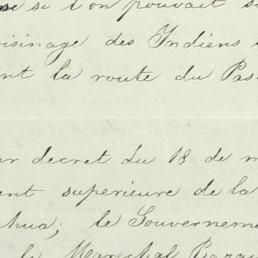 se si l'on pouvait
isinage des Indiens
nt la route du Pas
ar decret du 18 de m
ent superieure de la
hua; le Gouverneme
le Marechal Bazai